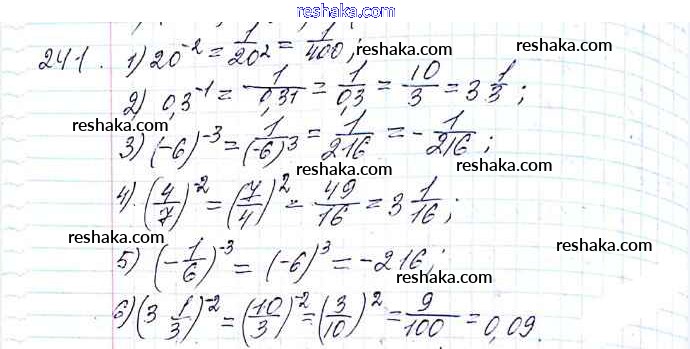 reshaka.com
241. 1) 20^{-2} = \frac{1}{20^2} = \frac{1}{400};
reshaka.com
2) 0,3^{-1} = \frac{1}{0,3^1} = \frac{1}{0,3} = \frac{10}{3} = 3\frac{1}{3};
reshaka.com
reshaka.com
3) (-6)^{-3} = \frac{1}{(-6)^3} = \frac{1}{216} = -\frac{1}{216};
reshaka.com
4). (\frac{4}{7})^{-2} = (\frac{7}{4})^2 = \frac{49}{16} = 3\frac{1}{16};
reshaka.com
reshaka.com
5) (-\frac{1}{6})^{-3} = (-6)^3 = -216;
reshaka.com
6) (3\frac{1}{3})^{-2} = (\frac{10}{3})^{-2} = (\frac{3}{10})^2 = \frac{9}{100} = 0,09.
reshaka.com
reshaka.com